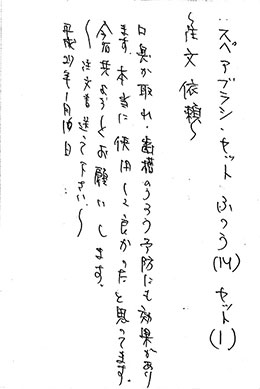 ∴スペアブラシ・セット ふつう(14) セット(1)
〜注文依頼〜
口臭が取れ・歯槽のうろう予防にも効果があり
ます。本当に使用して良かったと思ってます。
今后共よろしくお願いします。
〜注文書送って下さい。〜
平成27年1月16日 ∴